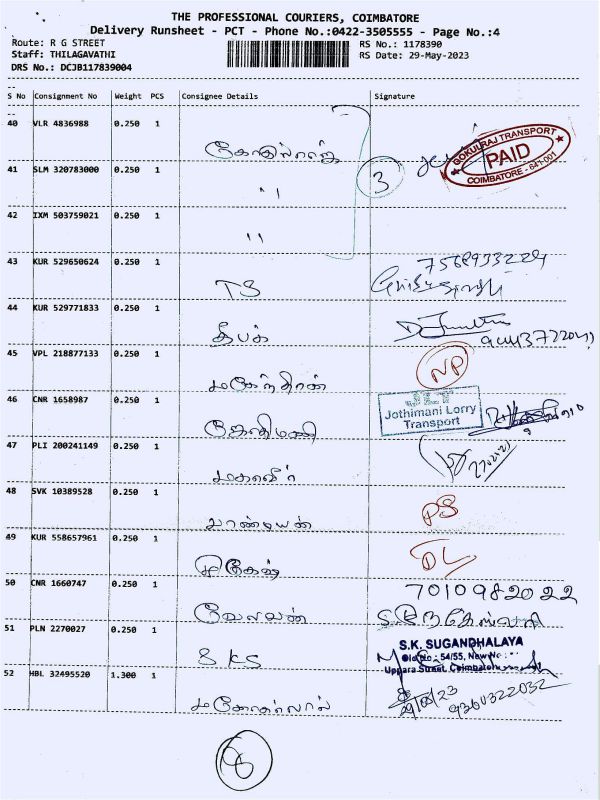 THE PROFESSIONAL COURIERS, COIMBATORE
Delivery Runsheet - PCT - Phone No.:0422-3505555 - Page No.:4
Route: R G STREET
Staff: THILAGAVATHI
DRS No.: DCJB117839004
RS No.: 1178390
RS Date: 29-May-2023
S No Consignment No Weight PCS Consignee Details Signature
40 VLR 4836988 0.250 1
GOKULRAJ TRANSPORT
PAID
COIMBATORE - 641 001
3
41 SLM 320783000 0.250 1
"
42 IXM 503759021 0.250 1
"
43 KUR 529650624 0.250 1 TS
44 KUR 529771833 0.250 1 தீபக்
45 VPL 218877133 0.250 1 மகேந்திரன் NP
46 CNR 1658987 0.250 1 ஜோதிமணி
JLT
Jothimani Lorry
Transport
47 PLI 200241149 0.250 1 மகாவீர்
48 SVK 10389528 0.250 1 பாண்டியன் PS
49 KUR 558657961 0.250 1 முகேஷ் DL
50 CNR 1660747 0.250 1 வேலவன் 7010982022
51 PLN 2270027 0.250 1 SKS
S.K. SUGANDHALAYA
Old No.: 54/55, New No.:
Uppara Street, Coimbatore
52 HBL 32495520 1.300 1
29/05/23
9360322032
8